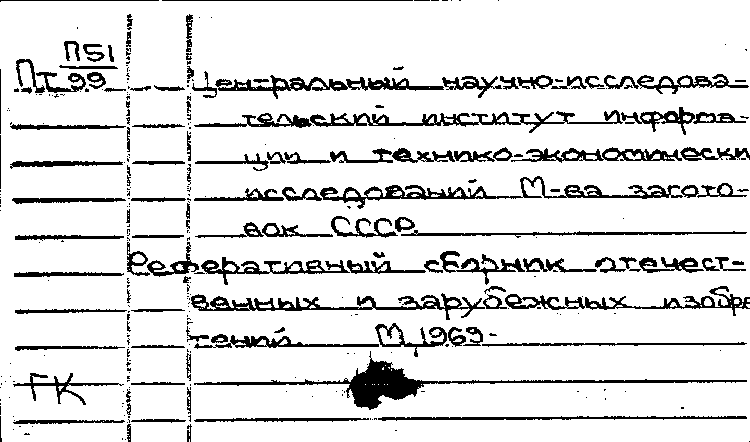 П51
Пт 99 Центральный научно-исследова-
тельский институт информа-
ции и технико-экономически
исследований М-ва загото-
вок СССР.
Реферативный сборник отечест-
венных и зарубежных изобре
тений. М, 1969-
ГК